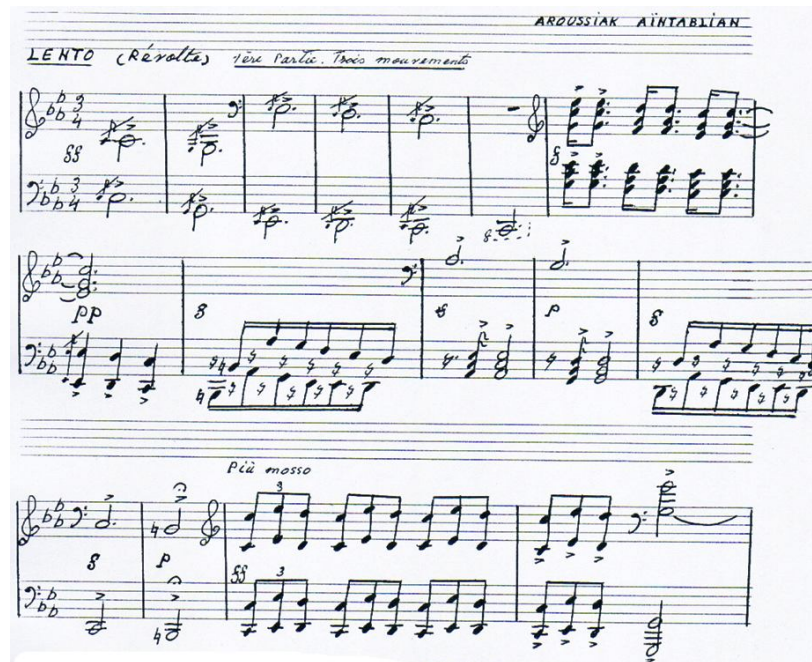 AROUSSIAK AÏNTABLIAN
LENTO (Révolte) 1ère Partie. Trois mouvements
Più mosso